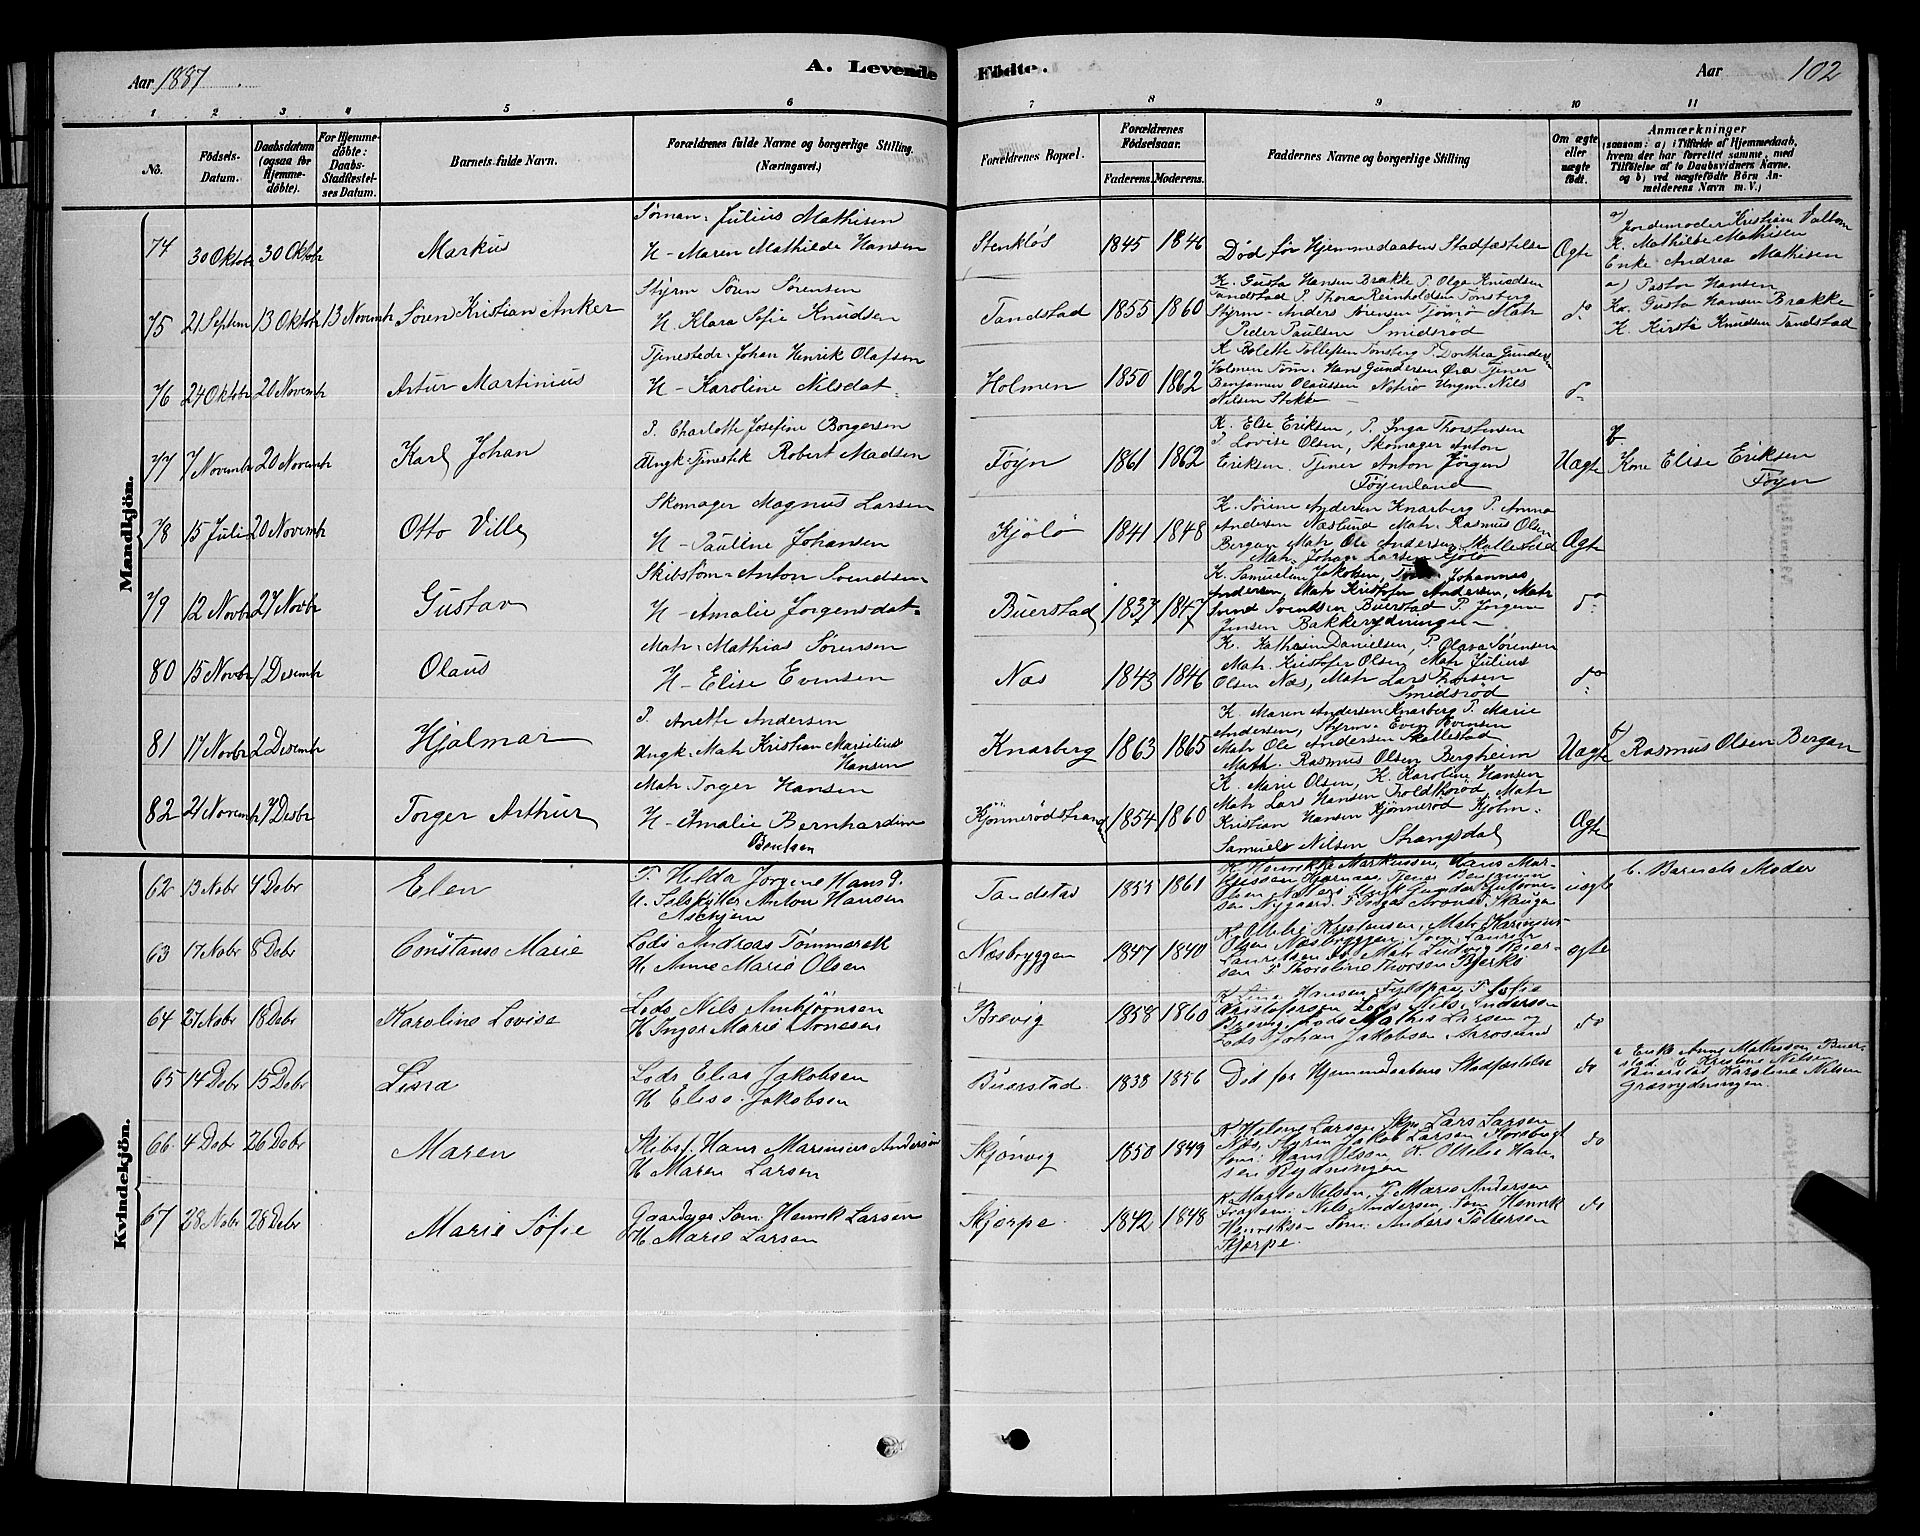 Aar 1887
A. Levende Födte.
Aar 102
1 2 3 4 5 6 7 8 9 10 11
No.
Födsels-Datum.
Daabsdatum (ogsaa for Hjemmedöbte).
For Hjemmedöbte: Daabs-Stadfæstelses Datum.
Barnets fulde Navn.
Forældrenes fulde Navne og borgerlige Stilling. (Næringsvei.)
Forældrenes Bopæl.
Forældrenes Födselsaar.
Faderens. Moderens.
Faddernes Navne og borgerlige Stilling
Om ægte eller uægte födt.
Anmærkninger
(saasom: a) i Tilfælde af Hjemmedaab, hvem der har forrettet samme, med Tilföielse af to Daabsvidners Navne. og b) ved uægtefödte Börn Anmelderens Navn m. V.)
Mandkjön.
74 30 Oktobr 30 Oktobr Markus
Söman. Julius Mathisen
H- Maren Mathilde Hansen
Stenklös 1845 1846
Död før Hjemmedaabens Stadfæstelse
Ægte
a) Jordemoder Kristiane
K. Mathilde Mathisen
Enke Andrea Mathisen
75 21 Septem 13 Oktobr 13 Novembr Sören Kristian Anker
Styrm Sören Sørensen
H. Klara Sofie Knudsen
Tandstad 1855 1860
K. Gusta Hansen Brække P. Olga Knudsen
Tandstad P. Thora Reinholdsen Tönsberg
Styrm- Anders Sörensen Tjømø Matr
Peder Paulsen Smidsröd
do
a) Pastor Hansen
Ka. Gusta Hansen Brække
K. Kirsta Knudsen Tandstad
76 24 Oktobr 26 Novembr Artur Martinius
Tjenestedr. Johan Henrik Olafsen
H- Karoline Nilsdat
Holmen 1850 1862
K Bolette Tollefsen Tonsberg P. Dorthea Gunders
Holmen Söm. Hans Gundersen Øra Tjener
Benjamin Olaussen Nøterö Ungm. Nils
Nilsen Stokke
do
77 7 Novembr 20 Novembr Karl Johan
P. Charlotte Josefine Borgersen
Ungk-Tjenestek Robert Madsen
Töÿn 1861 1862
K. Else Eriksen, P. Inga Thorstensen
P. Lovise Olsen, Skomager Anton
Eriksen. Tjener Anton Jörgen
Föÿenland
Uægte
b.
Kone Elise Eriksen
Föyn
78 15 Juli 20 Novembr Otto Villy
Skomager Magnus Larsen
H- Pauline Johansen
Kjölö 1841 1848
K. Sörine Andersen Knarberg P. Anna
Andersen Næslund Matr. Rasmus Olsen
Bergan Matr Ole Andersen Skallestad
Matr. Johan Larsen Kjölö
Ægte
79 12 Novbr 27 Novbr Gustav
Skibstöm- Anton Svendsen
H- Amalie Jorgensdat
Buerstad 1837 1847
K. Samuelsen Jakobsen, Johannes
Andersen, Matr Kristofer Andersen, Matr
Svend Svendsen Buerstad P. Jorgine
Jensen Bakkerydningen
do
80 15 Novbr 1 Desembr Olaus
Matr. Mathias Sörensen
H- Elise Evensen
Næs 1843 1846
K. Kathrin Danielsen, P. Olava Sørensen
Matr. Kristofer Olsen Matr Julius
Olsen Næs, Matr Lars Larsen
Smidsröd
do
81 17 Novbr 2 Desembr Hjalmar
P. Anette Andersen
Ungk. Matr Kristian Marselius
Hansen
Knarberg 1863 1865
K. Maren Andersen Knarberg P. Marie
Andersen, Styrm- Even Evensen
Matr Ole Andersen Skallestad
Math. Rasmus Olsen Bergheim
Uægte
b)
Rasmus Olsen Bergan
82 21 Novembr 7 Desbr Torger Arthur
Matr. Torger Hansen
H- Amalie Bernhardine
Bentsen
Kjönnerödstrand 1854 1860
K. Marie Olsen, K. Karoline Hansen
Matr Lars Hansen Troldkröd, Matr
Kristian Hansen Kjönneröd Kjöbm.
Samuel Nilsen Strangsdal
Ægte
Kvindekjön.
62 13 Nobr 4 Debr Elen
P. Hilda Jorgine Hansd.
U. Salskytter Anton Hansen
Aschjem
Tandstad 1853 1861
K. Henrikke Markussen, Hans
Tjener Benjamin
Olsen
uægte
b. Barnets Moder
63 17 Nobr 8 Debr Constanse Marie
Lods Andreas Tömmerek
H. Anne Marie Olsen
Næsbryggen 1847 1840
Olsen Næsbryggen, Söm. Laurits
Lauritsen do Matr Ludvig
P. Thoroline Thorsen Bjerke
ægte
64 27 Nobr 18 Debr Karoline Lovise
Lods Nils Ambjörnsen
H. Inger Marie Arnesen
Brevig 1858 1860
K Lina Hansen P. Sofie
Kristofersen Lods Nils Andersen
Brevig, Lods Mathis Larsen og
Lods Johan Jakobsen Aarosund
do
65 14 Debr 15 Debr Lisva
Lods Elias Jakobsen
H. Elise Jakobsen
Buerstad. 1838 1856
Död før Hjemmedaabens Stadfæstelse
do
a Enke Anne Mathisen Buerstad. K Kristine Nilsen
Buerstad, Karoline Nilsen
Græsrydningen.
66. 4 Debr 26 Debr Maren
Skibsf. Hans Marinius Andersen
H. Maren Larsen
Skjönvig 1850 1849
K. Helene Larsen Skjn Lars Larsen
Næs, Styrm Jakob Larsen
Söm. Hans Olsen, K. Othilie Hansen Rydningen
do
67 28 Nobr 28 Debr Marie Sofie
Gaardbgr Söm. Henrik Larsen
H. Marie Larsen
Skjerpe. 1842 1848
K. Marte Nilsen, P. Marie Andersen
Nils Andersen, Söm. Henrik
Henriksen Söm. Anders
Skjerpe.
do